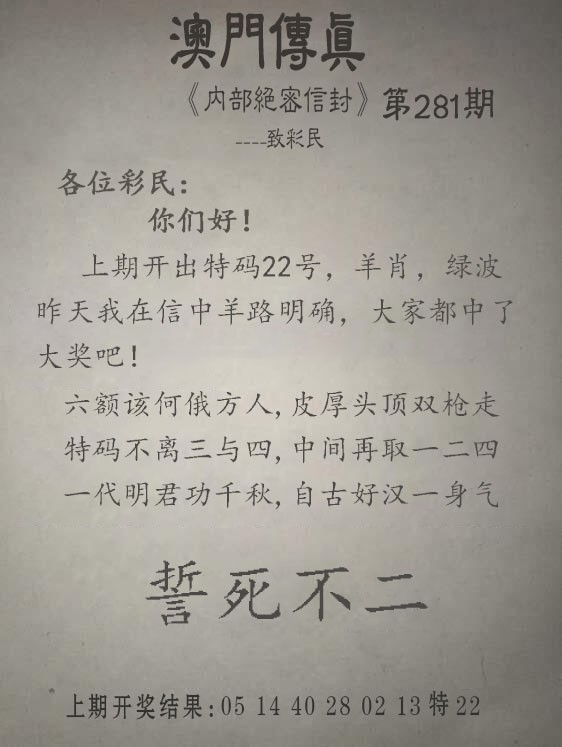 澳門傳真
《内部絕密信封》第281期
----致彩民
各位彩民：
你们好！
上期开出特码22号，羊肖，绿波
昨天我在信中羊路明确，大家都中了
大奖吧！
六额该何俄方人,皮厚头顶双枪走
特码不离三与四,中间再取一二四
一代明君功千秋,自古好汉一身气
誓死不二
上期开奖结果:05 14 40 28 02 13特22